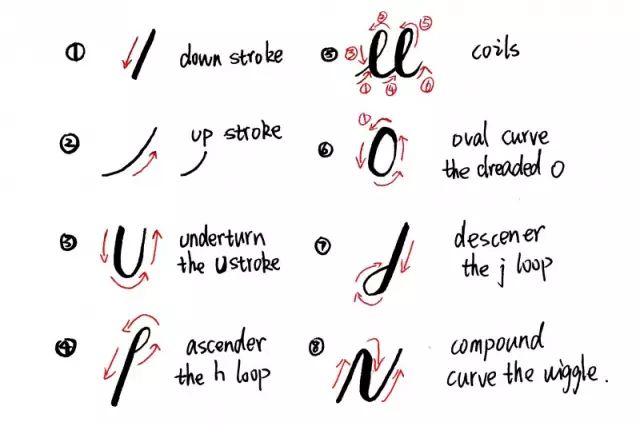 ① down stroke
② up stroke
③ underturn
the U stroke
④ ascender
the h loop
⑤ coils
② ⑤
③
① ④ ⑥
⑥ oval curve
the dreaded O
①
⑦ descener
the j loop
⑧ compound
curve the wiggle.